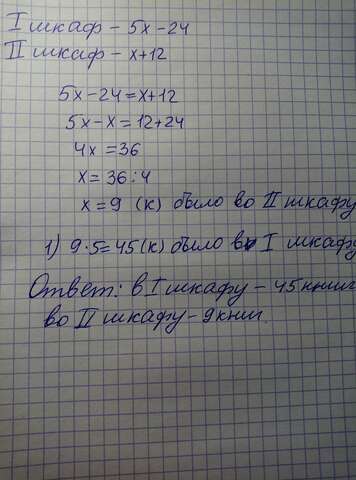 I шкаф - 5x-24
II шкаф - x+12
5x-24=x+12
5x-x=12+24
4x=36
x=36:4
x=9 (к) было во II шкафу
1) 9·5=45(к) было в I шкафу
Ответ: в I шкафу - 45 книг
во II шкафу - 9 книг.